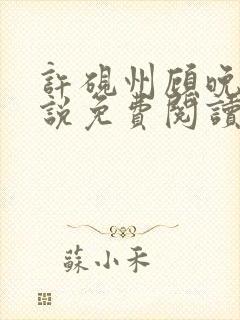 許硯州顾晚
說免費閱讀
蘇小禾